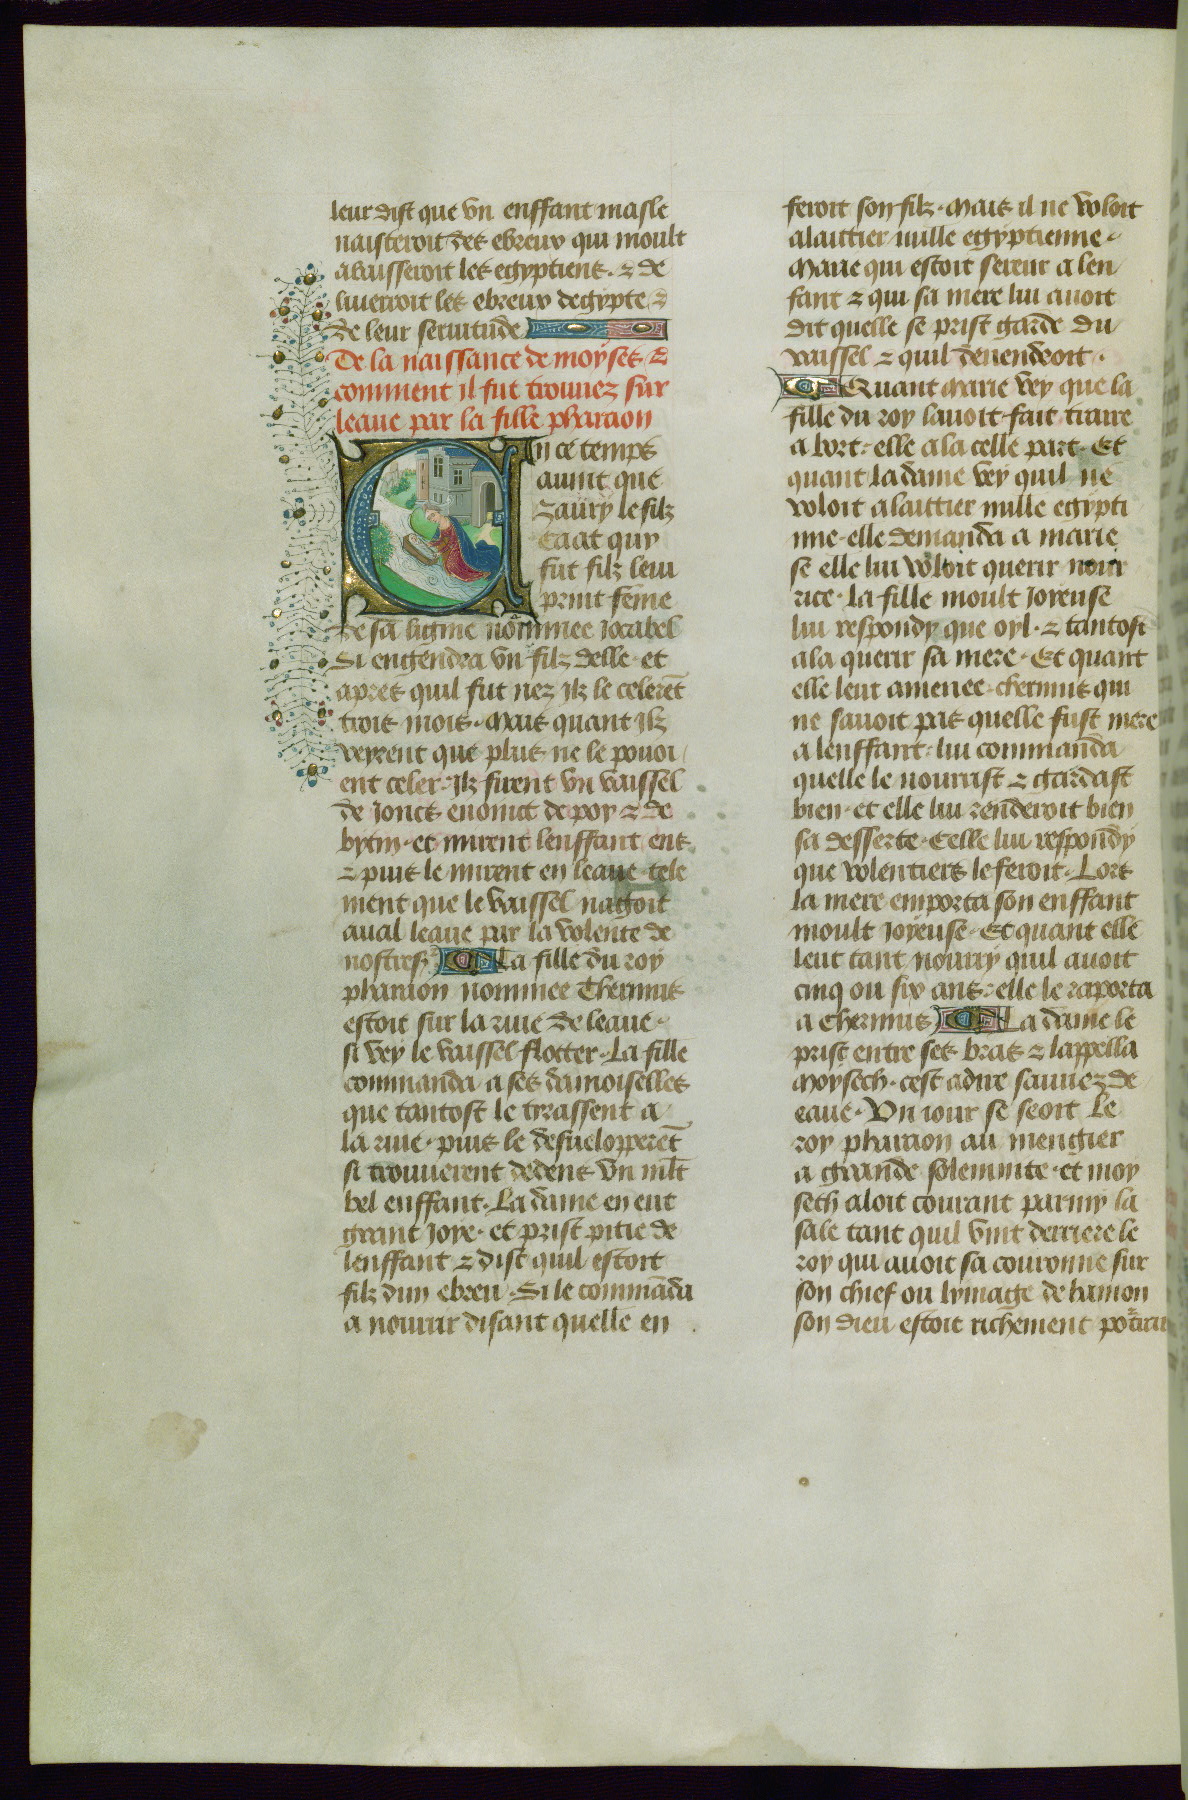 leur dist que vn enffant masle
naisteroit des ebreux qui moult
abaisseroit les egyptiens. & de
liuerroit les ebreux degypte &
de leur seruitude
De la naissance de moyses &
comment il fut trouuez sur
leaue par la fille pharaon
En ce temps
auint que
zaury le filz
caat quy
fut filz leui
print feme
de sa lignie nommee Jocabel
Si engendra vn filz delle. et
apres quil fut nez Ilz le celerēt
trois mois. Mais quant Ilz
veyrent que plus ne le pouoi
ent celer. Ilz firent vn vaissel
de Joncs enoint de poy & de
bytin. et mirent lenffant ens
& puis le mirent en leaue tele
ment que le vaissel nagoit
aual leaue par la volente de
nostres^r La fille du roy
pharaon nommee Thermus
estoit sur la riue de leaue.
si vey le vaissel flotter. La fille
commanda a ses damoiselles
que tantost le tirassent a
la riue. puis le desuelopperēt
si trouuerent dedens vn mlt
bel enffant. La dame en eut
grant Joye. et prist pitie de
lenffant & dist quil estoit
filz dun ebreu. Si le commāda
a nourir disant quelle en
feroit son filz. Mais il ne voloit
alaittier nulle egyptienne.
Marie qui estoit sereur a len
fant & qui sa mere lui auoit
dit quelle se prist garde du
vaissel & quil deuendroit.
Quant Marie vey que la
fille du roy lauoit fait traire
a bort. elle ala celle part. Et
quant la dame vey quil ne
voloit alaittier nulle egypti
nne. elle demanda a marie
se elle lui voloit querir nour
rice. La fille moult Joyeuse
lui respondy que oyl. & tantost
ala querir sa mere. Et quant
elle leut amenee. chermus qui
ne sauoit pas quelle fust mere
a lenffant. lui commanda
quelle le nourrist & gardast
bien. et elle lui renderoit bien
sa desserte. Celle lui respondy
que volentiers le feroit. Lors
la mere emporta son enffant
moult Joyeuse. Et quant elle
leut tant nourry quil auoit
cinq ou six ans. elle le raporta
a chermus La dame le
prist entre ses bras & lappella
Moysech. cest adire sauuez de
eaue. Vn iour se seoit le
roy pharaon au mengier
a grande solemnite. et moy
sech aloit courant parmy la
sale tant quil vint derriere le
roy qui auoit sa couronne sur
son chief ou lymage de hamon
son dieu estoit richement